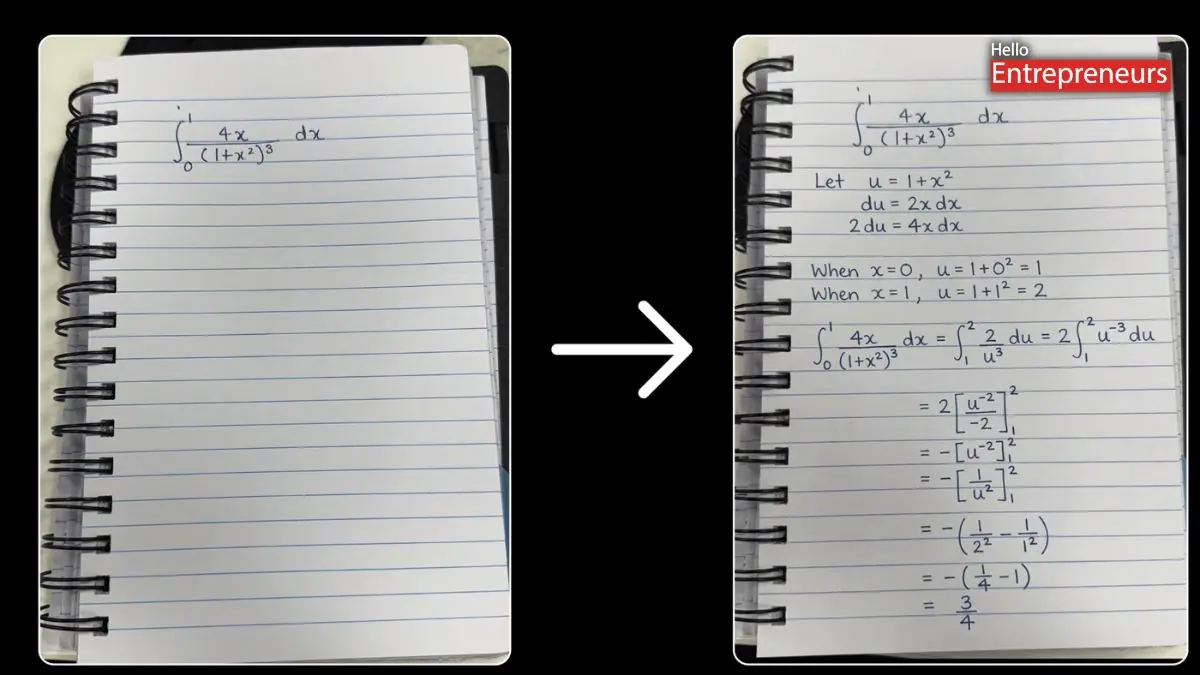 ∫₀¹ 4x/(1+x²)³ dx
Hello
Entrepreneurs
∫₀¹ 4x/(1+x²)³ dx
Let u = 1+x²
du = 2x dx
2 du = 4x dx
When x=0, u = 1+0² = 1
When x=1, u = 1+1² = 2
∫₀¹ 4x/(1+x²)³ dx = ∫₁² 2/u³ du = 2∫₁² u⁻³ du
= 2[u⁻²/-2]₁²
= -[u⁻²]₁²
= -[1/u²]₁²
= -(1/2² - 1/1²)
= -(1/4 - 1)
= 3/4